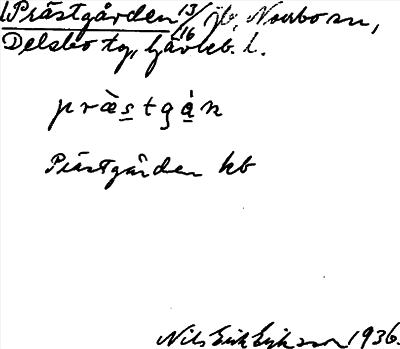 Prästgården 13/16 jb, Norrbo sn,
Delsbo tg, Gävleb. l.
præ̀s̲tgå̲̇n
Prästgården kb
Nils Erik Eriksson 1936.